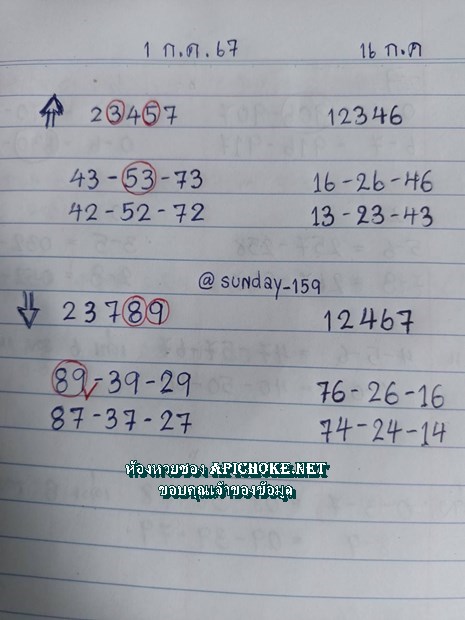 1 ก.ค. 67 16 ก.ค
⇑ 23457 12346
43-53-73 16-26-46
42-52-72 13-23-43
@sunday_159
⇓ 23789 12467
89-39-29 76-26-16
87-37-27 74-24-14
ห้องหวยซอง APICHOKE.NET
ขอบคุณเจ้าของข้อมูล